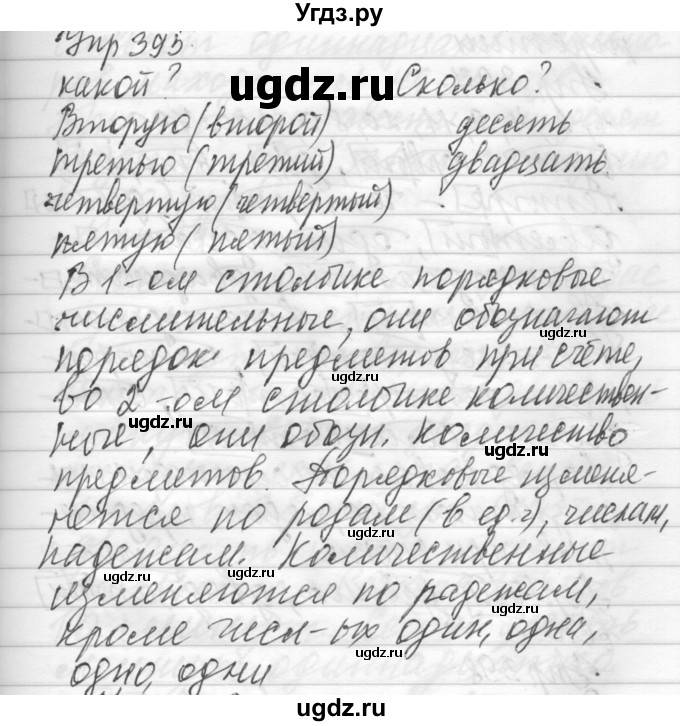 Угдз.ру
Упр 395.
какой? Сколько?
ugdz.ru
Вторую (второй) десять
третью (третий) двадцать
четвертую (четвертый)
пятую (пятый)
В 1-ом столбике порядковые
числительные, они обозначают
ugdz.ru
порядок предметов при счёте,
ugdz.ru
во 2-ом столбике количествен-
ные, они обозн. количество
предметов. Порядковые изменя-
ugdz.ru
ются по родам (в ед.ч), числам,
ugdz.ru
падежам. Количественные
ugdz.ru ugdz.ru
изменяются по падежам,
ugdz.ru
кроме числ-ых один, одна,
ugdz.ru
одно, одни
ugdz.ru